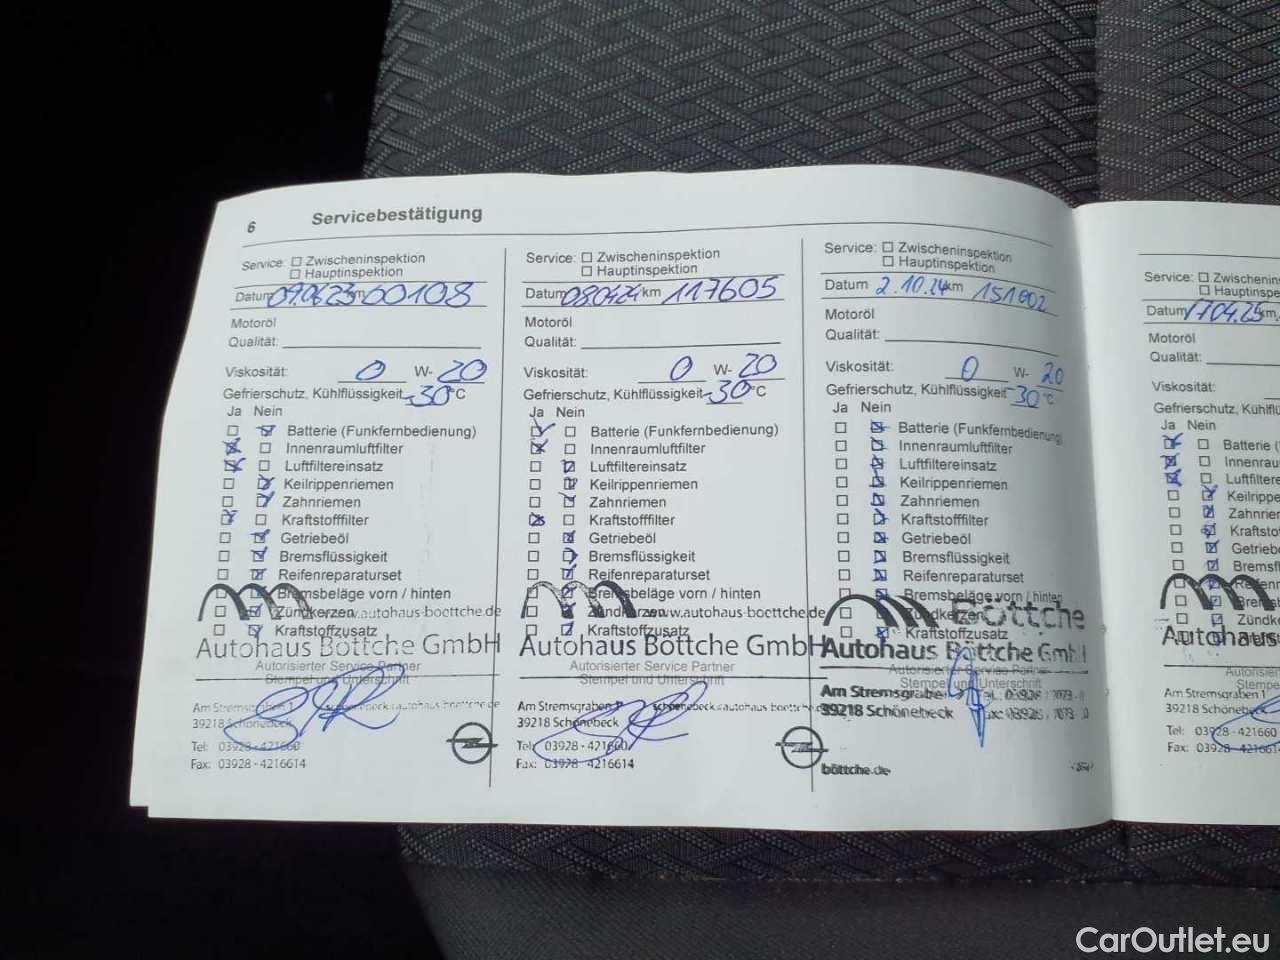 6 Servicebestätigung
Service: Zwischeninspektion
Hauptinspektion
Datum 09.06.23 km 60108
Motoröl
Qualität:
Viskosität: 0 W- 20
Gefrierschutz, Kühlflüssigkeit -30°C
Ja Nein
Batterie (Funkfernbedienung)
Innenraumluftfilter
Luftfiltereinsatz
Keilrippenriemen
Zahnriemen
Kraftstofffilter
Getriebeöl
Bremsflüssigkeit
Reifenreparaturset
Bremsbeläge vorn / hinten
Zündkerzen www.autohaus-boettche.de
Kraftstoffzusatz
Autohaus Böttche GmbH
Autorisierter Service Partner
Stempel und Unterschrift
Am Stremsgraben 1
39218 Schönebeck
Tel: 03928 - 421660
Fax: 03928 - 4216614
Service: Zwischeninspektion
Hauptinspektion
Datum 08.04.24 km 117605
Motoröl
Qualität:
Viskosität: 0 W- 20
Gefrierschutz, Kühlflüssigkeit -30°C
Ja Nein
Batterie (Funkfernbedienung)
Innenraumluftfilter
Luftfiltereinsatz
Keilrippenriemen
Zahnriemen
Kraftstofffilter
Getriebeöl
Bremsflüssigkeit
Reifenreparaturset
Bremsbeläge vorn / hinten
Zündkerzen www.autohaus-boettche.de
Kraftstoffzusatz
Autohaus Böttche GmbH
Autorisierter Service Partner
Stempel und Unterschrift
Am Stremsgraben
39218 Schönebeck
Tel: 03928 - 421660
Fax: 03928 - 4216614
Service: Zwischeninspektion
Hauptinspektion
Datum 2.10.24 km 151002
Motoröl
Qualität:
Viskosität: 0 W- 20
Gefrierschutz, Kühlflüssigkeit 30°C
Ja Nein
Batterie (Funkfernbedienung)
Innenraumluftfilter
Luftfiltereinsatz
Keilrippenriemen
Zahnriemen
Kraftstofffilter
Getriebeöl
Bremsflüssigkeit
Reifenreparaturset
Bremsbeläge vorn / hinten
Zündkerzen Böttche
Kraftstoffzusatz
Autohaus Böttche GmbH
Autorisierter Service Partner
Stempel und Unterschrift
Am Stremsgraben
39218 Schönebeck
böttche.de
Service: Zwischenin
Hauptinspe
Datum 17.04.25 km
Motoröl
Qualität:
Viskosität:
Gefrierschutz, Kühlfl
Ja Nein
Batterie (
Innenrau
Luftfilter
Keilripp
Zahnrie
Kraftsto
Getriebe
Bremsfl
Reifen
Brems
Zündk
Autohaus
Autoris
Stempe
Am Stremsgraben 1
39218 Schönebeck
Tel: 03928 - 421660
Fax: 03928 - 421661
CarOutlet.eu